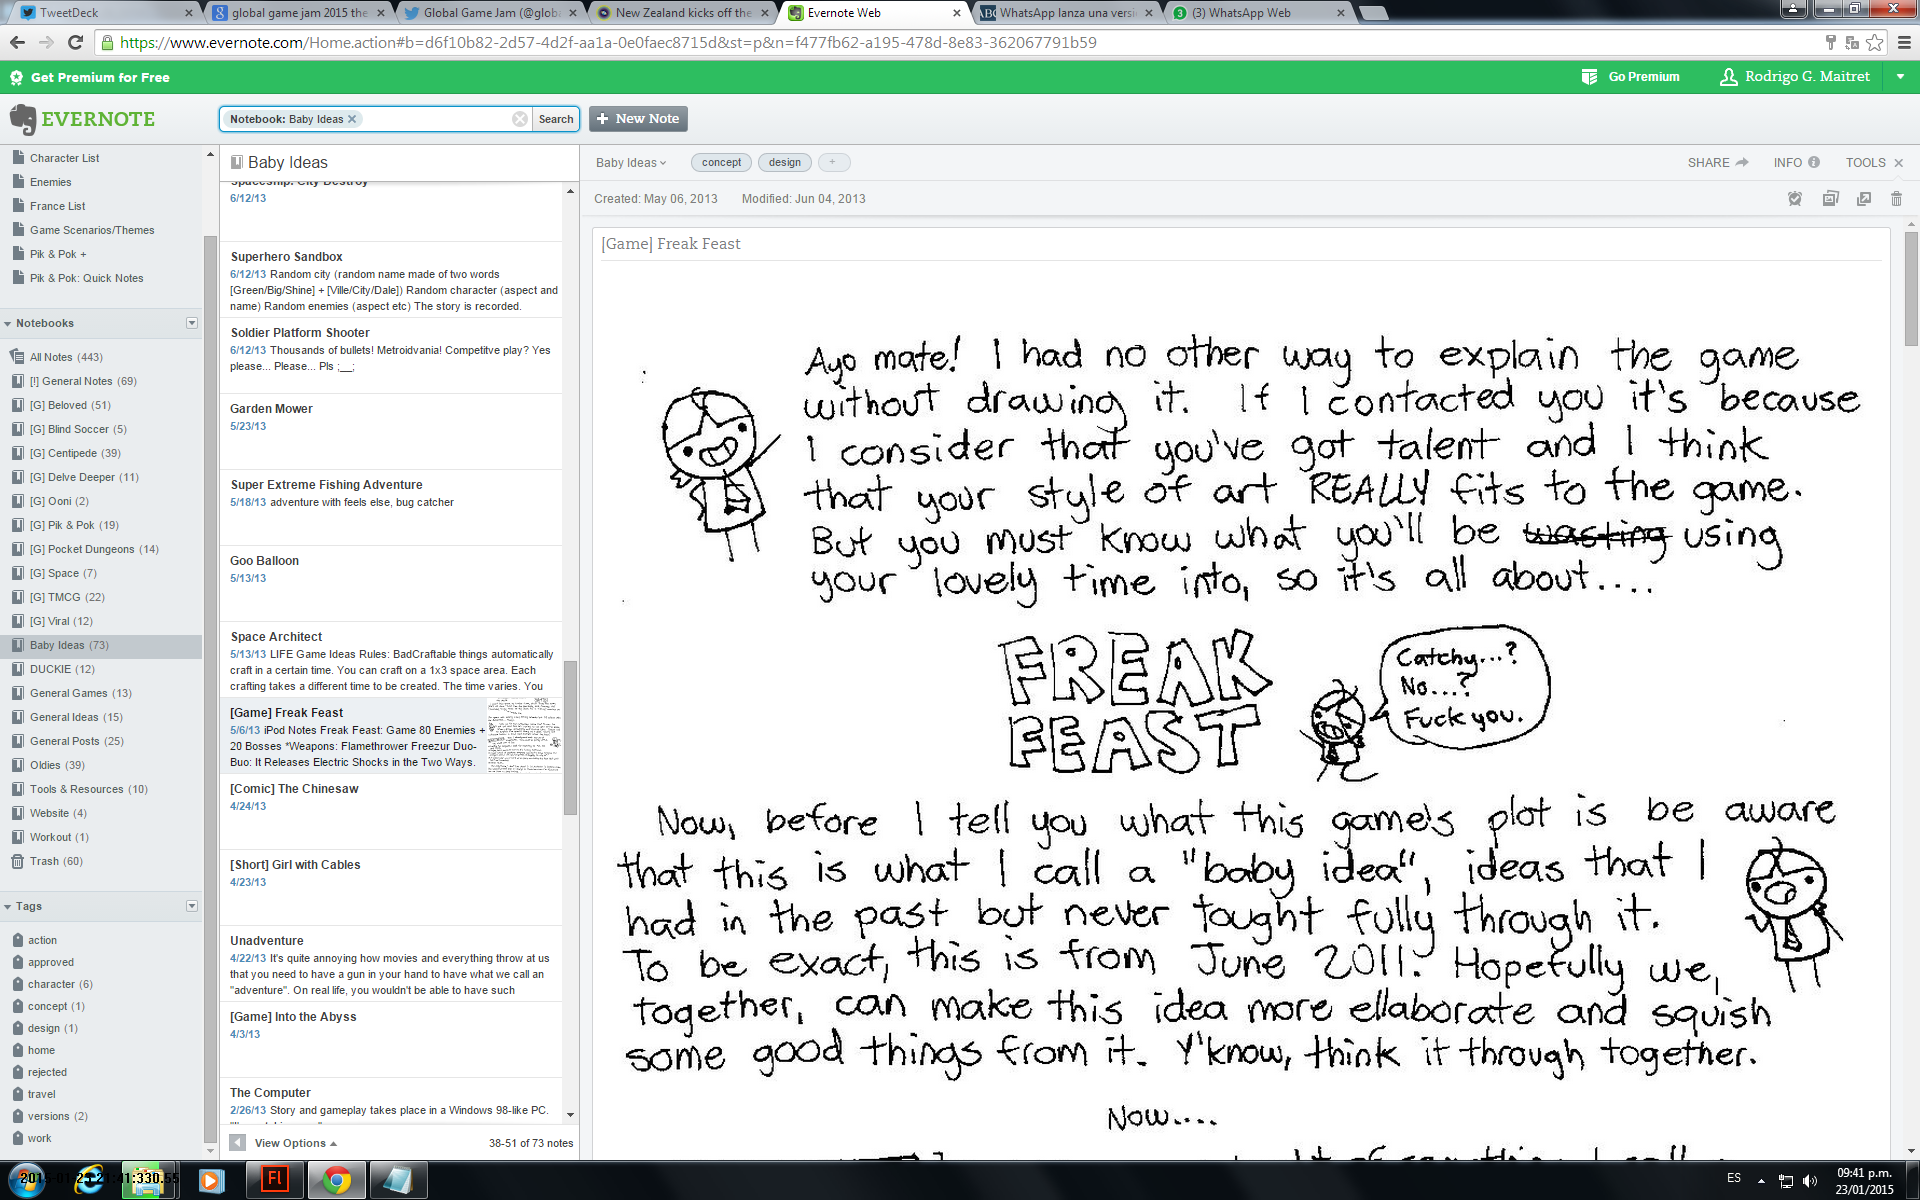 TweetDeck
global game jam 2015 the
Global Game Jam (@globa
New Zealand kicks off the
Evernote Web
WhatsApp lanza una versi
(3) WhatsApp Web
https://www.evernote.com/Home.action#b=d6f10b82-2d57-4d2f-aa1a-0e0faec8715d&st=p&n=f477fb62-a195-478d-8e83-362067791b59
Get Premium for Free
Go Premium
Rodrigo G. Maitret
EVERNOTE
Notebook: Baby Ideas
Search
+ New Note
Character List
Enemies
France List
Game Scenarios/Themes
Pik & Pok +
Pik & Pok: Quick Notes
Notebooks
All Notes (443)
[!] General Notes (69)
[G] Beloved (51)
[G] Blind Soccer (5)
[G] Centipede (39)
[G] Delve Deeper (11)
[G] Ooni (2)
[G] Pik & Pok (19)
[G] Pocket Dungeons (14)
[G] Space (7)
[G] TMCG (22)
[G] Viral (12)
Baby Ideas (73)
DUCKIE (12)
General Games (13)
General Ideas (15)
General Posts (25)
Oldies (39)
Tools & Resources (10)
Website (4)
Workout (1)
Trash (60)
Tags
action
approved
character (6)
concept (1)
design (1)
home
rejected
travel
versions (2)
work
Baby Ideas
Spaceship: City Destroy
6/12/13
Superhero Sandbox
6/12/13 Random city (random name made of two words
[Green/Big/Shine] + [Ville/City/Dale]) Random character (aspect and
name) Random enemies (aspect etc) The story is recorded.
Soldier Platform Shooter
6/12/13 Thousands of bullets! Metroidvania! Competitve play? Yes
please... Please... Pls ;__;
Garden Mower
5/23/13
Super Extreme Fishing Adventure
5/18/13 adventure with feels else, bug catcher
Goo Balloon
5/13/13
Space Architect
5/13/13 LIFE Game Ideas Rules: BadCraftable things automatically
craft in a certain time. You can craft on a 1x3 space area. Each
crafting takes a different time to be created. The time varies. You
[Game] Freak Feast
5/6/13 iPod Notes Freak Feast: Game 80 Enemies +
20 Bosses *Weapons: Flamethrower Freezur Duo-
Buo: It Releases Electric Shocks in the Two Ways.
[Comic] The Chinesaw
4/24/13
[Short] Girl with Cables
4/23/13
Unadventure
4/22/13 It's quite annoying how movies and everything throw at us
that you need to have a gun in your hand to have what we call an
"adventure". On real life, you wouldn't be able to have such
[Game] Into the Abyss
4/3/13
The Computer
2/26/13 Story and gameplay takes place in a Windows 98-like PC.
View Options
38-51 of 73 notes
Baby Ideas
concept
design
+
SHARE
INFO
TOOLS
Created: May 06, 2013
Modified: Jun 04, 2013
[Game] Freak Feast
Ayo mate! I had no other way to explain the game
without drawing it. If I contacted you it's because
I consider that you've got talent and I think
that your style of art REALLY fits to the game.
But you must know what you'll be wasting using
your lovely time into, so it's all about....
FREAK
FEAST
Catchy...?
No....?
Fuck you.
Now, before I tell you what this game's plot is be aware
that this is what I call a "baby idea", ideas that I
had in the past but never tought fully through it.
To be exact, this is from June 2011. Hopefully we,
together, can make this idea more ellaborate and squish
some good things from it. Y'know, think it through together.
Now....
ES
09:41 p.m.
23/01/2015